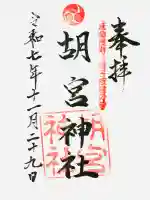 奉拝
胡宮神社
令和七年十一月二十九日
胡宮
神社